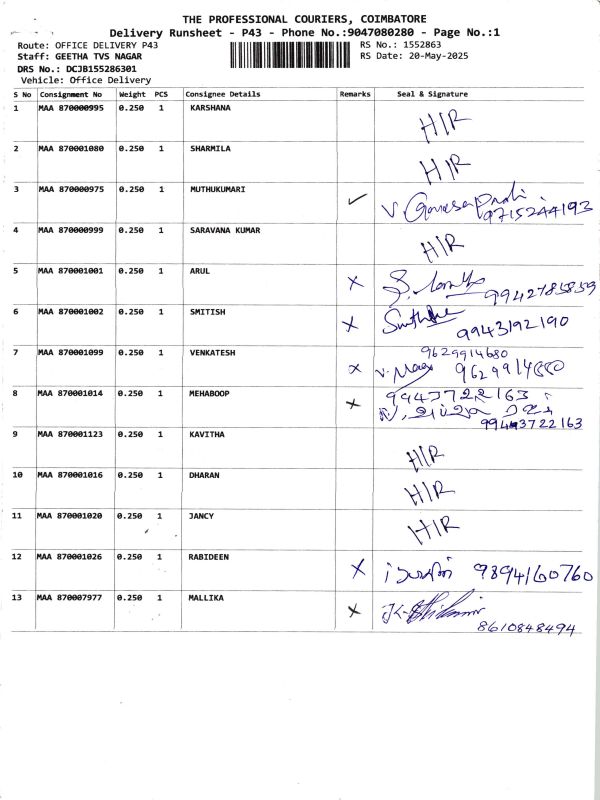 THE PROFESSIONAL COURIERS, COIMBATORE
Delivery Runsheet - P43 - Phone No.:9047080280 - Page No.:1
Route: OFFICE DELIVERY P43 RS No.: 1552863
Staff: GEETHA TVS NAGAR RS Date: 20-May-2025
DRS No.: DCJB155286301
Vehicle: Office Delivery
S No Consignment No Weight PCS Consignee Details Remarks Seal & Signature
1 MAA 870000995 0.250 1 KARSHANA H/R
2 MAA 870001080 0.250 1 SHARMILA H/R
3 MAA 870000975 0.250 1 MUTHUKUMARI ✓ V.
9715244193
4 MAA 870000999 0.250 1 SARAVANA KUMAR H/R
5 MAA 870001001 0.250 1 ARUL X
9942785859
6 MAA 870001002 0.250 1 SMITISH X
9943192190
7 MAA 870001099 0.250 1 VENKATESH X 9629914680
9629914680
8 MAA 870001014 0.250 1 MEHABOOP X 9943722163
9943722163
9 MAA 870001123 0.250 1 KAVITHA H/R
10 MAA 870001016 0.250 1 DHARAN H/R
11 MAA 870001020 0.250 1 JANCY H/R
12 MAA 870001026 0.250 1 RABIDEEN X 9894160760
13 MAA 870007977 0.250 1 MALLIKA X
8610848494